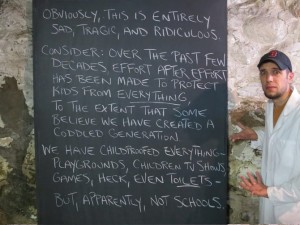 OBVIOUSLY, THIS IS ENTIRELY
SAD, TRAGIC, AND RIDICULOUS.
CONSIDER: OVER THE PAST FEW
DECADES, EFFORT AFTER EFFORT
HAS BEEN MADE TO PROTECT
KIDS FROM EVERYTHING,
TO THE EXTENT THAT SOME
BELIEVE WE HAVE CREATED A
CODDLED GENERATION.
WE HAVE CHILDPROOFED EVERYTHING—
PLAYGROUNDS, CHILDREN TV SHOWS,
GAMES, HECK, EVEN TOILETS—
BUT, APPARENTLY, NOT SCHOOLS.